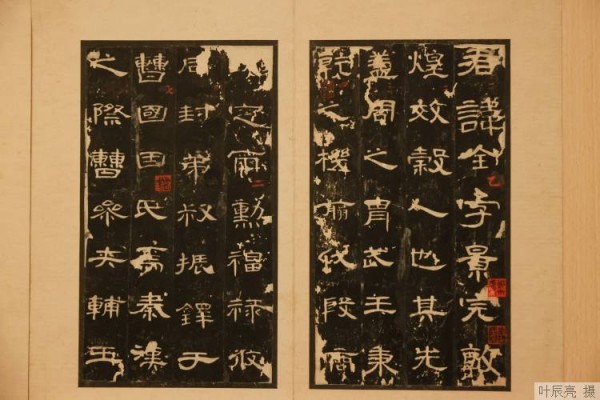 君諱全字景完敦
煌效穀人也其先
蓋周之胄武王秉
乾之機翦伐殷商
定爾勳福祿攸
同封弟叔振鐸于
曹國因氏焉秦漢
之際曹參夾輔王
叶辰亮 摄